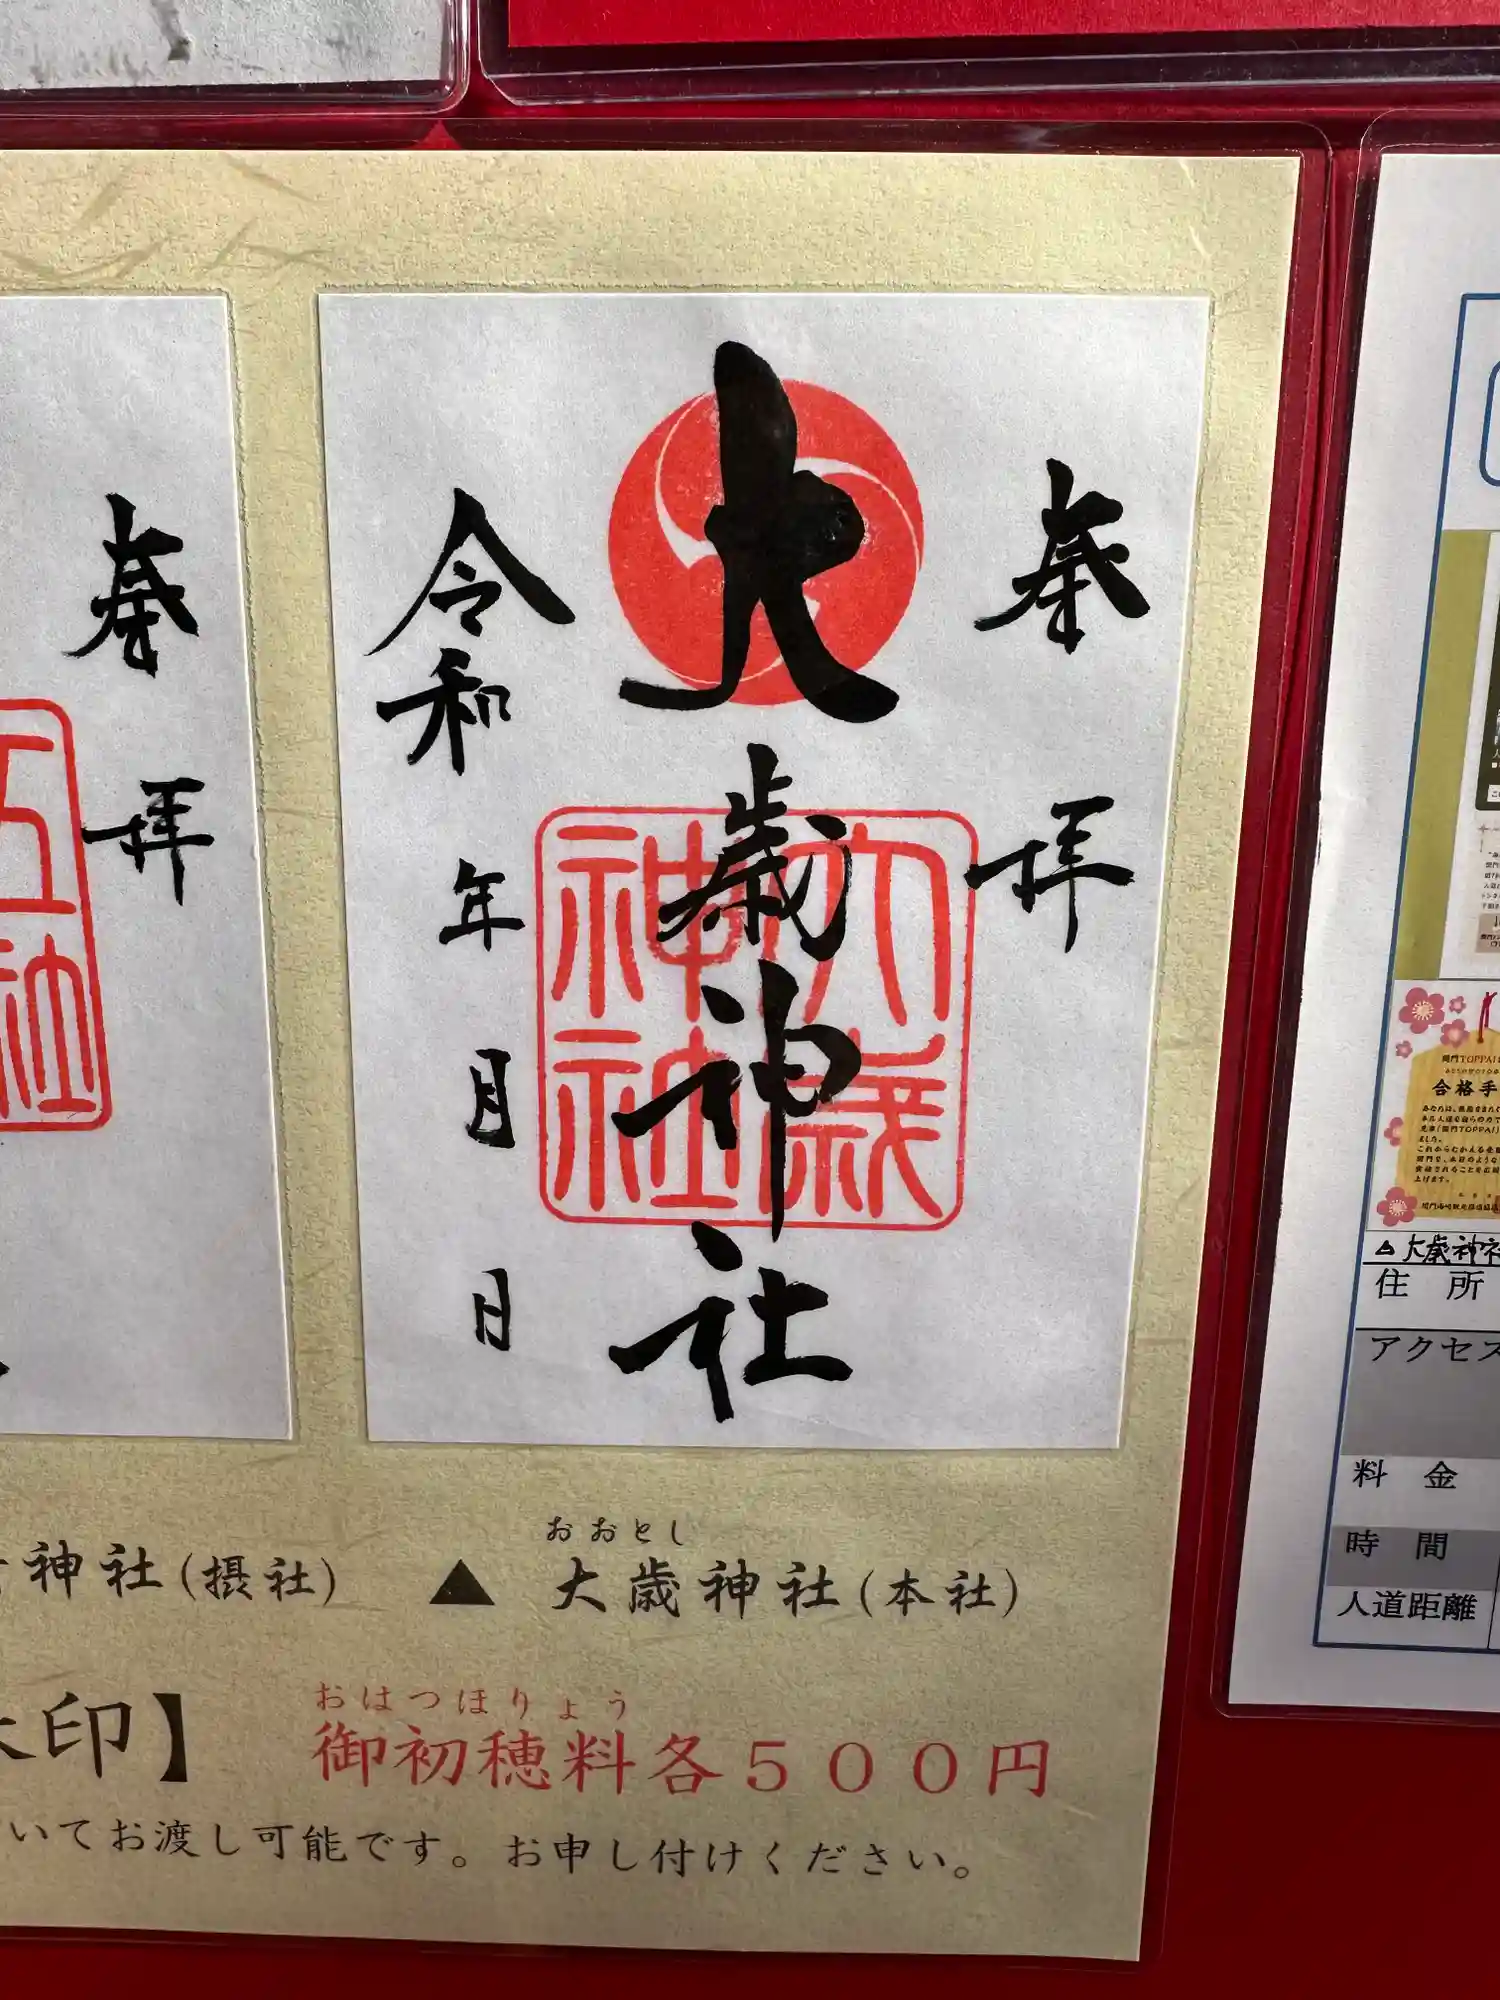 奉拝
大歳神社
大歳神社
令和 年 月 日
奉拝
おおとし
神社(摂社) ▲ 大歳神社(本社)
おはつほりょう
印】 御初穂料各500円
いてお渡し可能です。お申し付けください。
関門TOPPA!
合格手
△大歳神社
住 所
アクセス
料 金
時 間
人道距離